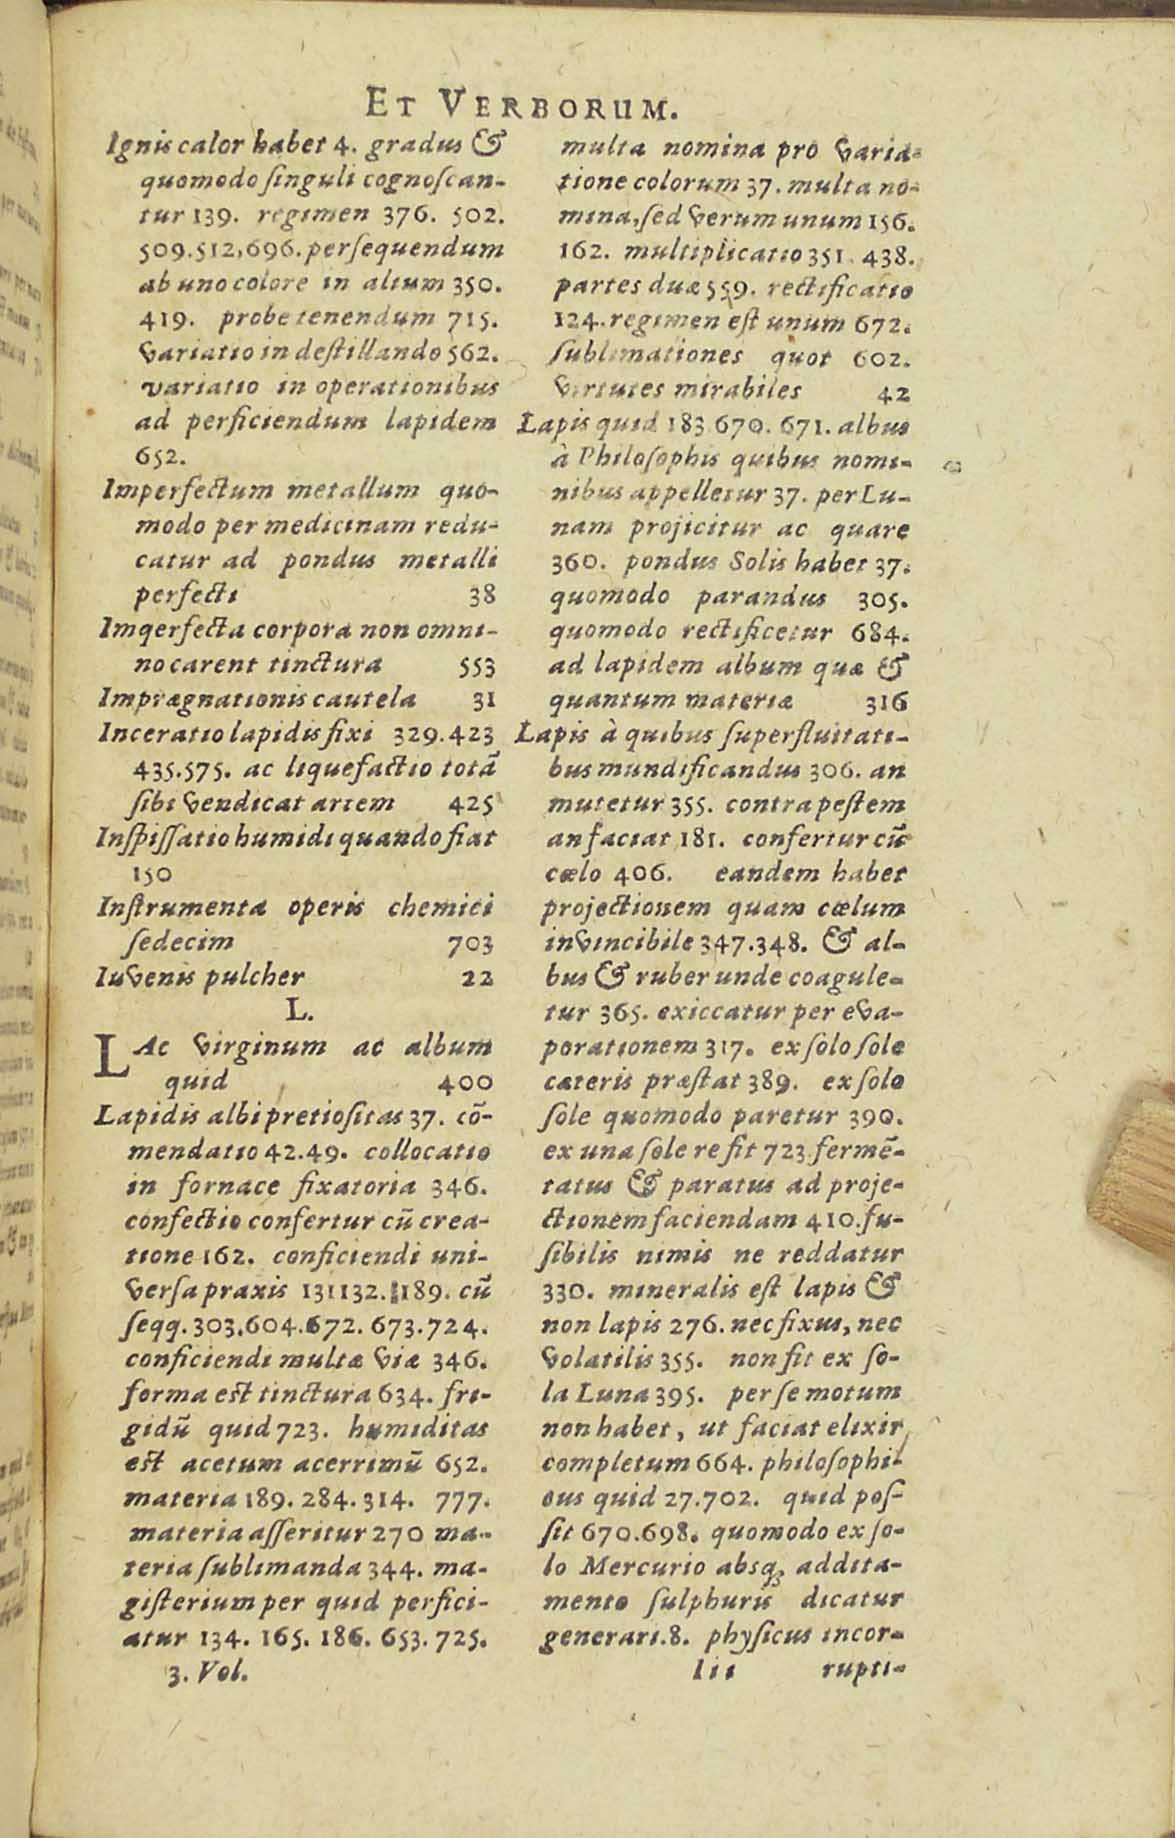 ET VERBORUM.
Ignis calor habet 4. gradus &
quomodo ſinguli cognoſcan-
tur 139. regimen 376. 502.
509.512,696. perſequendum
ab uno colore in alium 350.
419. probe tenendum 715.
variatio in deſtillando 562.
variatio in operationibus
ad perficiendum lapidem
652.
Imperfectum metallum quo-
modo per medicinam redu-
catur ad pondus metalli
perfecti 38
Imqerfecta corpora non omni-
no carent tinctura 553
Imprægnationis cautela 31
Inceratio lapidis fixi 329.423
435.575. ac liquefactio totã
ſibi vendicat artem 425
Inſpiſſatio humidi quando fiat
150
Inſtrumenta operis chemici
ſedecim 703
Iuvenis pulcher 22
L.
LAc virginum ac album
quid 400
Lapidis albi pretioſitas 37. cõ-
mendatio 42.49. collocatio
in fornace fixatoria 346.
confectio confertur cũ crea-
tione 162. conficiendi uni-
verſa praxis 131132. 189. cũ
ſeqq. 303.604.672. 673.724.
conficiendi multæ viæ 346.
forma est tinctura 634. fri-
gidũ quid 723. humiditas
est acetum acerrimũ 652.
materia 189. 284. 314. 777.
materia aſſeritur 270 ma-
teria ſublimanda 344. ma-
giſterium per quid perfici-
atur 134. 165. 186. 653. 725.
3. Vol.
multa nomina pro varia-
tione colorum 37. multa no-
mina, ſed verum unum 156.
162. multiplicatio 351. 438.
partes duæ 559. rectificatio
124. regimen eſt unum 672.
ſublimationes quot 602.
virtutes mirabiles 42
Lapis quid 183 670. 671. albus
à Philoſophis quibus nomi-
nibus appelletur 37. per Lu-
nam projicitur ac quare
360. pondus Solis habet 37.
quomodo parandus 305.
quomodo rectificetur 684.
ad lapidem album quæ &
quantum materiæ 316
Lapis à quibus ſuperfluitati-
bus mundificandus 306. an
mutetur 355. contra peſtem
an faciat 181. confertur cũ
cœlo 406. eandem habet
projectionem quam cœlum
invincibile 347.348. & al-
bus & ruber unde coagule-
tur 365. exiccatur per eva-
porationem 317. ex ſolo ſole
cæteris præſtat 389. ex ſolo
ſole quomodo paretur 390.
ex una ſole re fit 723 fermẽ-
tatus & paratus ad proje-
ctionem faciendam 410. fu-
ſibilis nimis ne reddatur
330. mineralis eſt lapis &
non lapis 276. nec fixus, nec
volatilis 355. non fit ex ſo-
la Luna 395. per ſe motum
non habet, ut faciat elixir
completum 664. philoſophi-
cus quid 27.702. quid poſ-
ſit 670.698. quomodo ex ſo-
lo Mercurio absq; addita-
mento ſulphuris dicatur
generari.8. phyſicus incor-
Iii rupti-